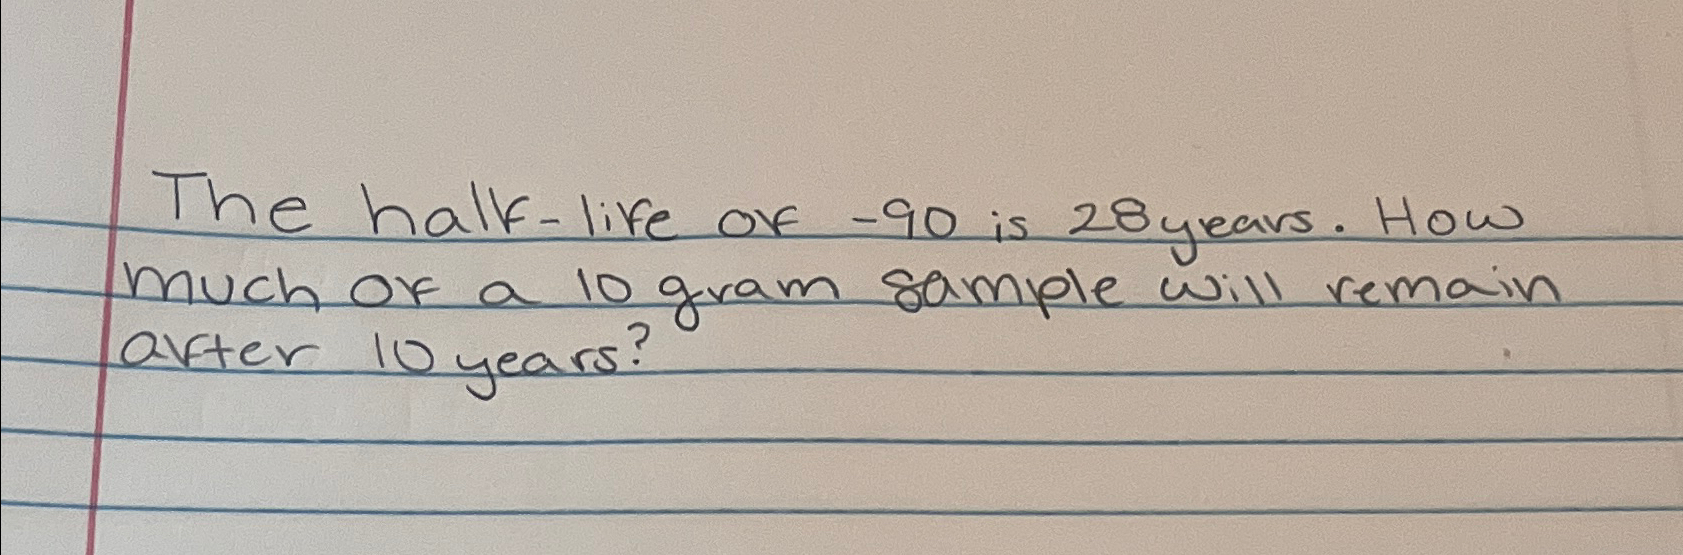 The half-life of -90 is 28 years. How
much of a 10 gram sample will remain
after 10 years?